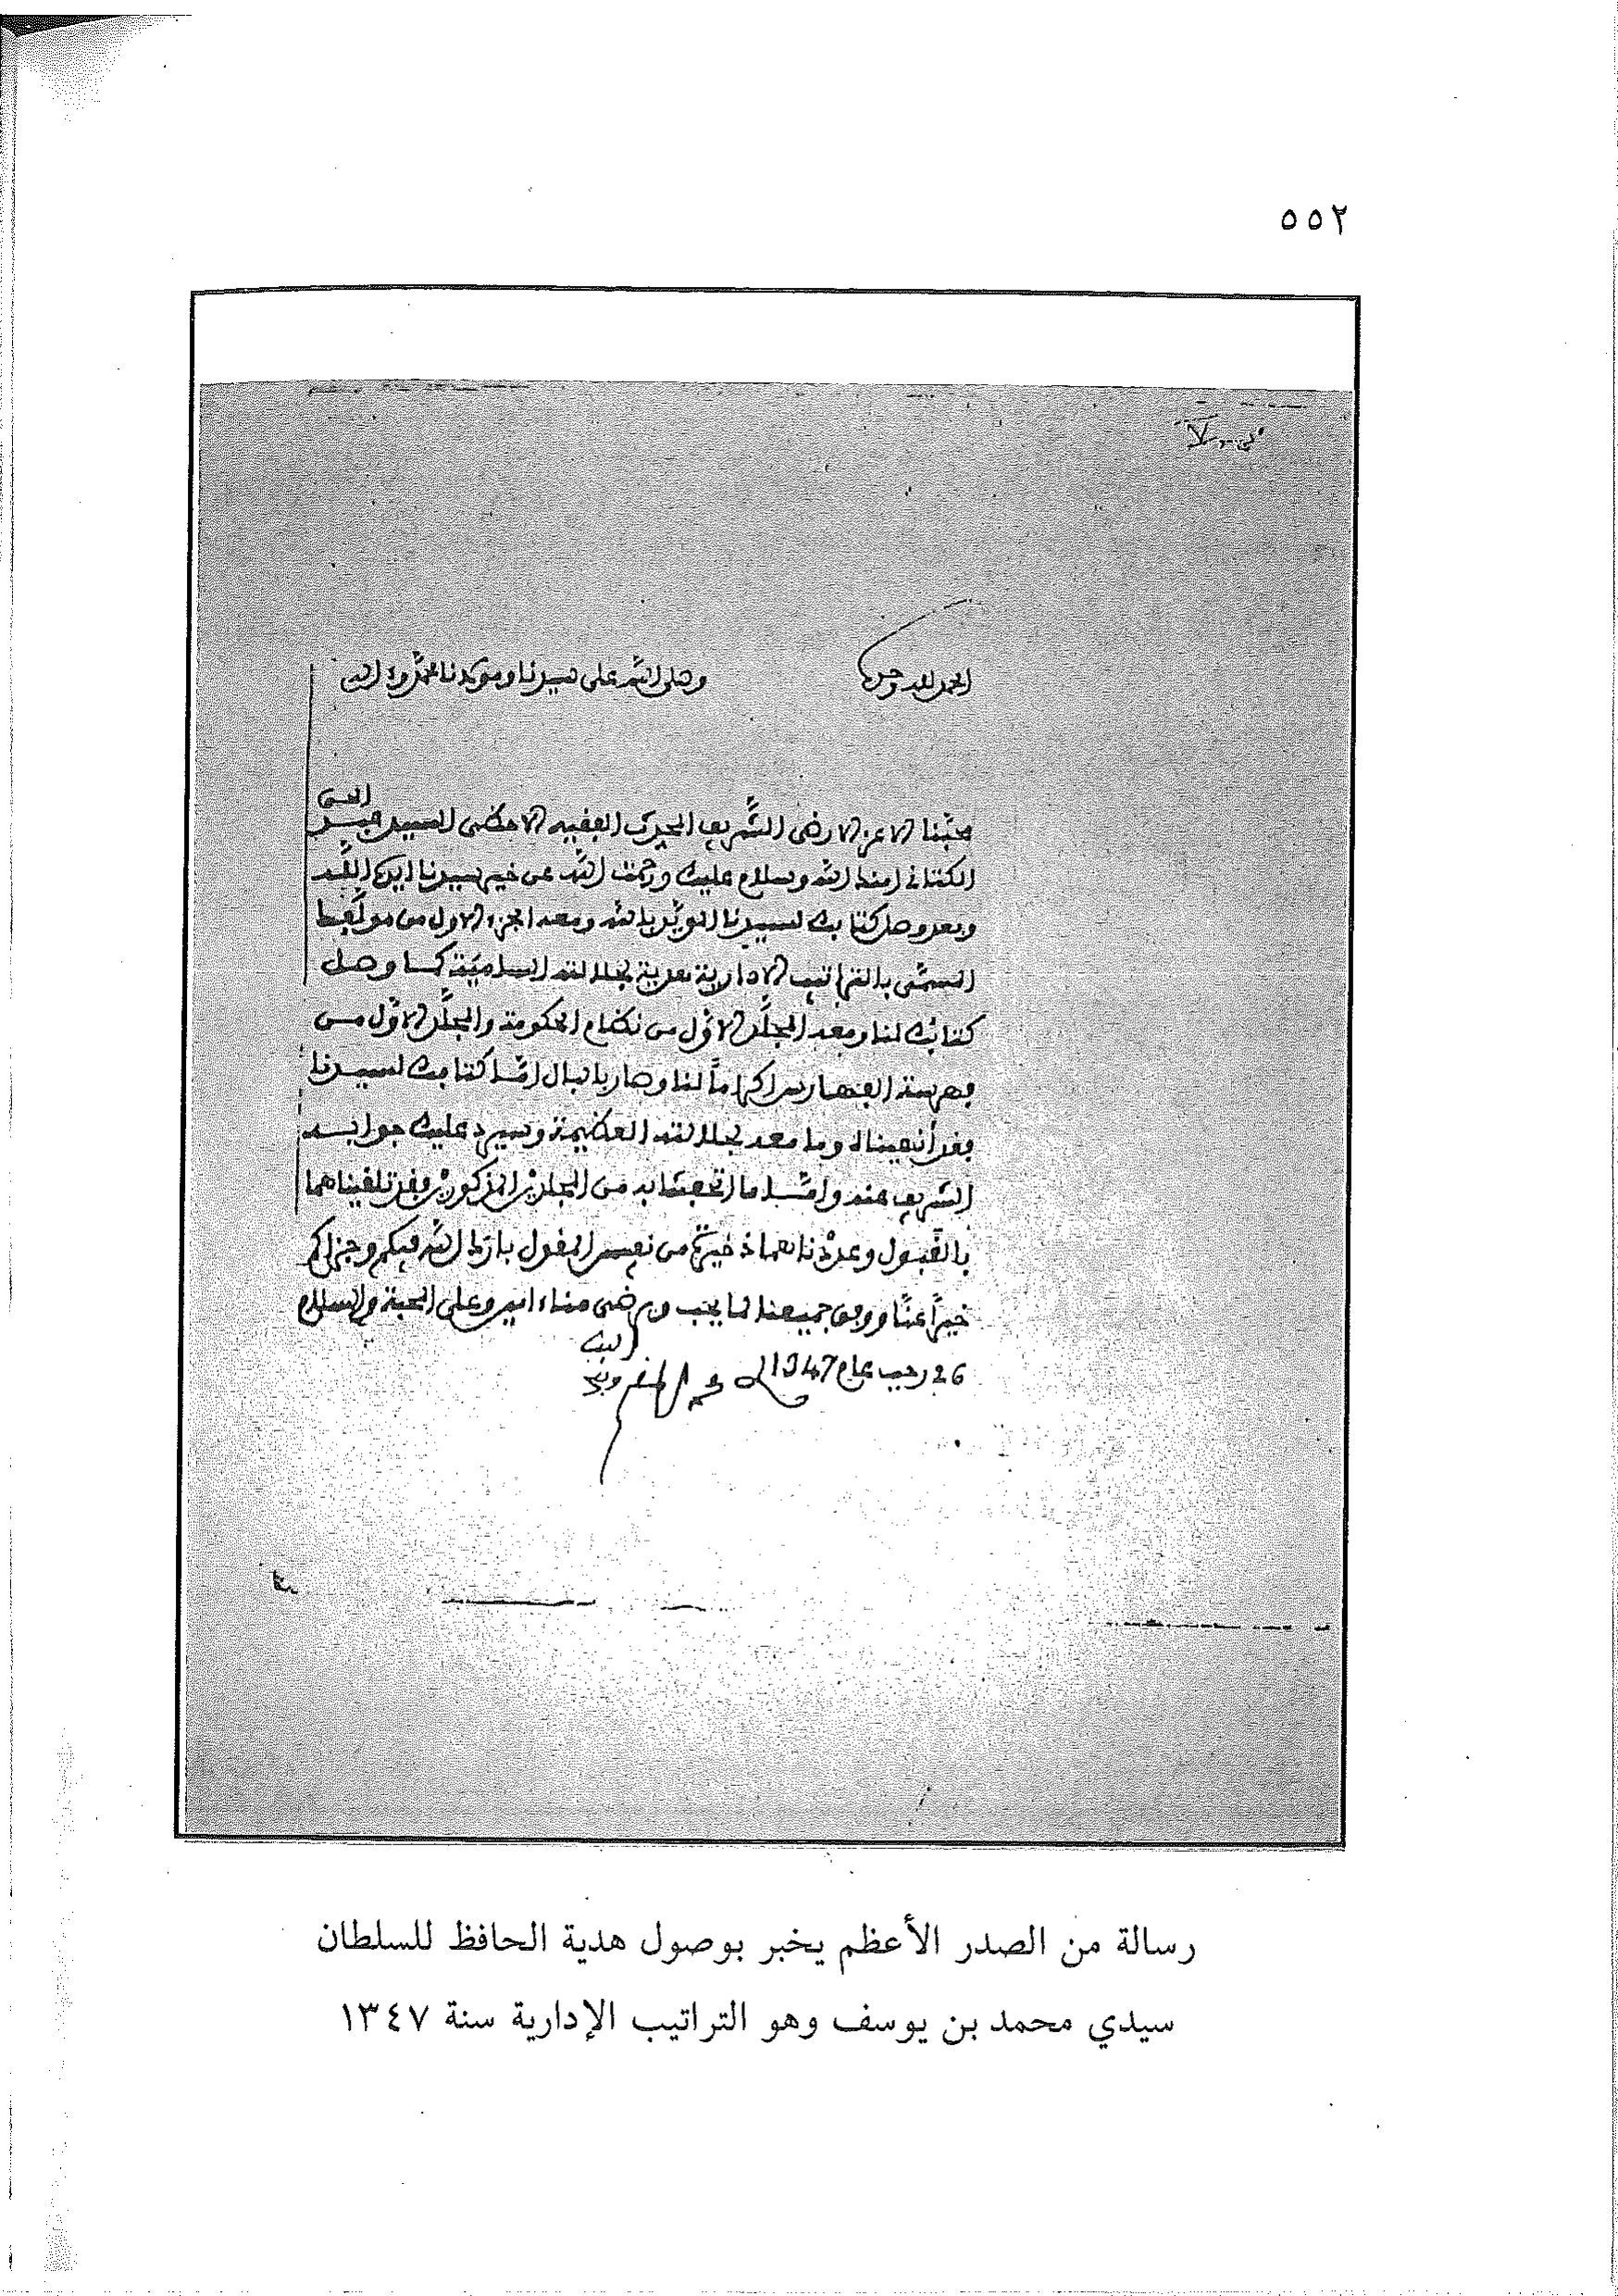 ٥٥٢
الحمد لله وحده
وصلى الله على سيدنا ومولانا محمد وءاله
محبنا الاعز الارضى الشريف المحدث الفقيه الاحظى السيد عبد الحي
الكتاني امنك الله وسلام عليك ورحمت الله عن خير سيدنا ايده الله
وبعد وصل كتابك لسيدنا المويد بالله ومعه الجزء الاول من مولفك
المسمى بالتراتيب الادارية هدية لجلالته السامية كما وصل
كتابك لنا ومعه المجلد الاول من نظام الحكومة والمجلد الاول من
فهرسة الفهارس اكراماً لنا وصار بالبال امّا كتابك لسيدنا
فقد أنهيناه وما معه لجلالته العظيمة وسيرد عليك جوابه
الشريف عنه وامّا ما اتحفتنا به من المجلدين المذكورين فقد تلقيناهما
بالقبول وعددناهما ذخيرة من نفيس المنقول بارك الله فيكم وجزاكم
خيراً عنّا ووفق جميعنا لما يحب ويرضى منه ءامين وعلى المحبة والسلام
26 رجب عام 1347 محمد المقري
رسالة من الصدر الأعظم يخبر بوصول هدية الحافظ للسلطان
سيدي محمد بن يوسف وهو التراتيب الإدارية سنة ١٣٤٧